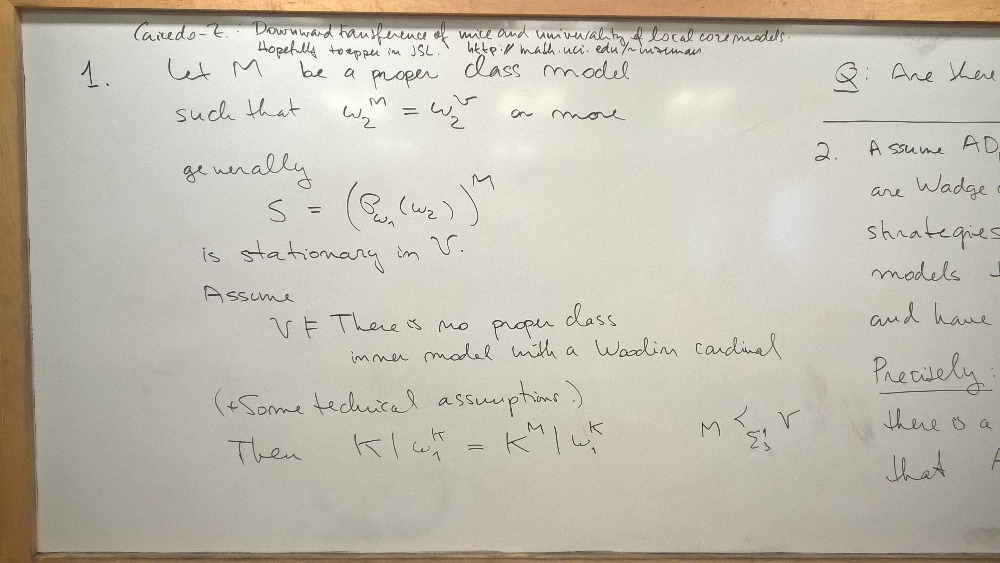 Caicedo-Z.: Downward transference of mice and universality of local core models.
Hopefully to appear in JSL. http://math.uci.edu/~mzeman
1. Let M be a proper class model
such that ω₂^M = ω₂^V or more
generally
S = (P_ω₁(ω₂))^M
is stationary in V.
Assume
V ⊨ There is no proper class
inner model with a Woodin cardinal
(+Some technical assumptions.)
Then K|ω₁^K = K^M|ω₁^K
M ≺_Σ¹₃ V
Q: Are there
2. Assume AD
are Wadge
strategies
models
and have
Precisely:
there is a
that